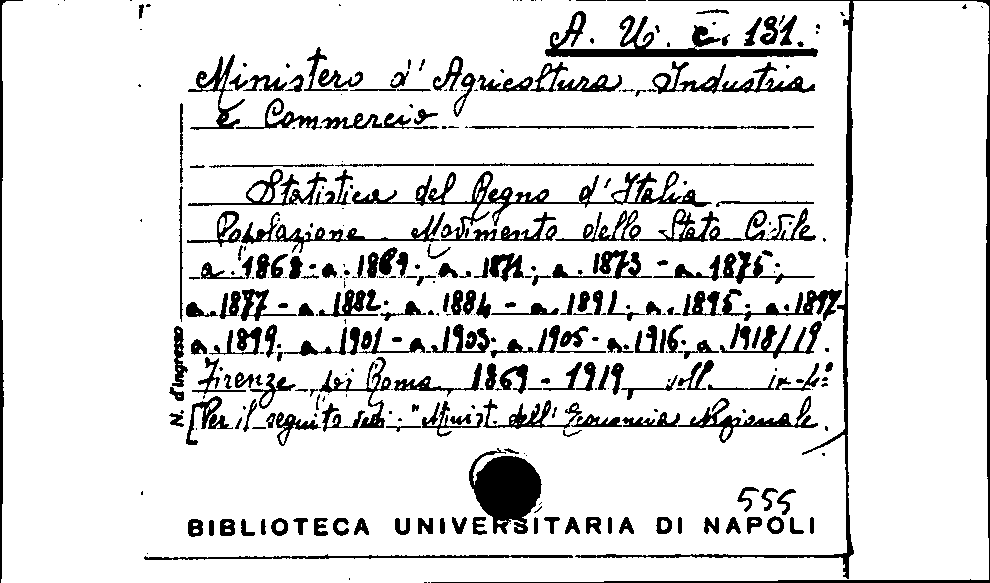 A. U. c. 131.
Ministero d'Agricoltura, Industria
e Commercio
Statistica del Regno d'Italia.
Popolazione. Movimento dello Stato Civile.
a. 1868 - a. 1869; a. 1871; a. 1873 - a. 1875;
a. 1877 - a. 1882; a. 1884 - a. 1891; a. 1895; a. 1897-
a. 1899; a. 1901 - a. 1903; a. 1905 - a. 1916; a. 1918/19.
Firenze, poi Roma, 1869 - 1919, voll. in-4°
[Per il seguito vedi: "Minist. dell'Economia Nazionale.
N. d'ingresso
555
BIBLIOTECA UNIVERSITARIA DI NAPOLI